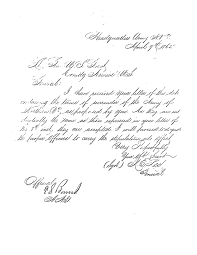 Headquarters Army N.Va
April 9th 1865
Lt. Gen. U.S. Grant
Comdg Armies U.S.
General:
I have received your letter of this date
containing the terms of surrender of the Army of
Northern Va. as proposed by you. As they are sub-
stantially the same as those expressed in your letter of
the 8th inst, they are accepted. I will proceed to designate
the proper officers to carry the stipulations into effect
Very Respectfully
Your obt servt
R. E. Lee
General
Official